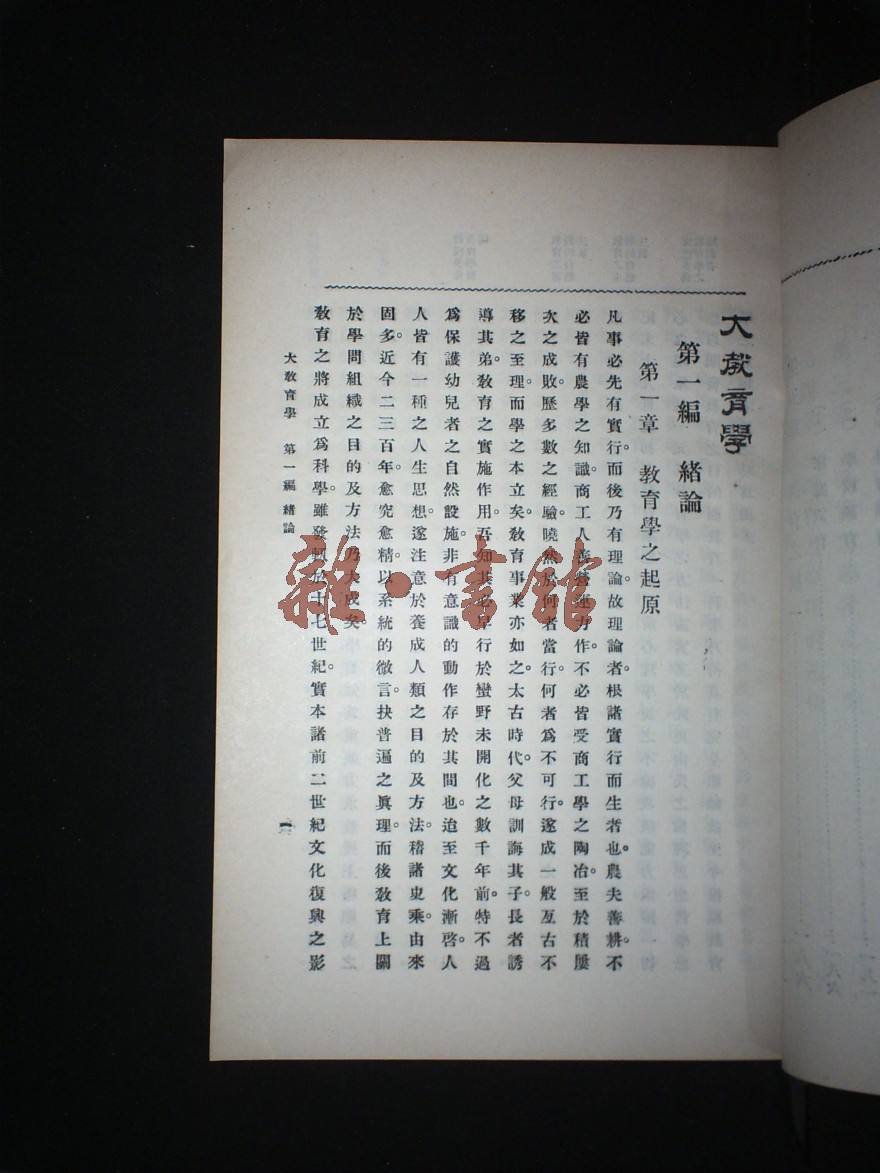 大教育學
第一編　緒論
第一章　教育學之起原
凡事必先有實行。而後乃有理論。故理論者。根諸實行而生者也。農夫善耕。不
必皆有農學之知識。商工人善營運力作。不必皆受商工學之陶冶。至於積屢
次之成敗。歷多數之經驗。曉然於何者當行。何者爲不可行。遂成一般互古不
移之至理。而學之本立矣。教育事業亦如之。太古時代。父母訓誨其子。長者誘
導其弟。教育之實施作用。吾知其必早行於蠻野未開化之數千年前。特不過
爲保護幼兒者之自然設施。非有意識的動作存於其間也。迨至文化漸啓。人
人皆有一種之人生思想。遂注意於養成人類之目的及方法。稽諸史乘。由來
固多。近今二三百年。愈究愈精。以系統的微言。抉普遍之眞理。而後教育上關
於學問組織之目的及方法。乃大成矣。
教育之將成立爲科學。雖發軔於十七世紀。實本諸前二世紀文化復興之影
大教育學　第一編　緒論
一
雜·書館